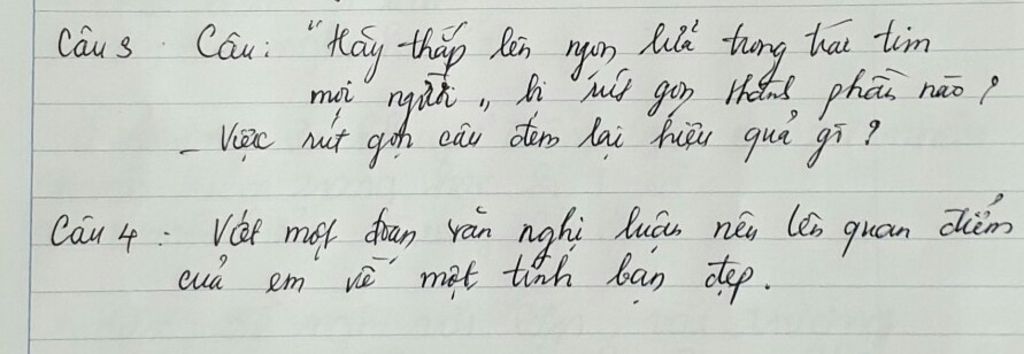 Câu 3 . Câu: "Hãy thắp lên ngọn lửa trong trái tim
mọi người„ bị rút gọn thành phần nào?
- Việc rút gọn câu đem lại hiệu quả gì?
Câu 4 : Viết một đoạn văn nghị luận nêu lên quan điểm
của em về một tình bạn đẹp.